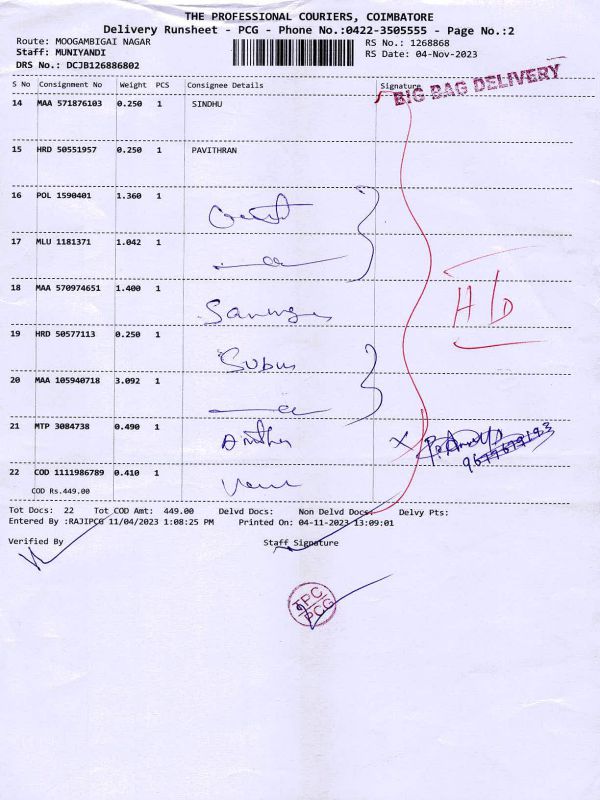 THE PROFESSIONAL COURIERS, COIMBATORE
Delivery Runsheet - PCG - Phone No.:0422-3505555 - Page No.:2
Route: MOOGAMBIGAI NAGAR RS No.: 1268868
Staff: MUNIYANDI RS Date: 04-Nov-2023
DRS No.: DCJB126886802
BIG BAG DELIVERY
S No Consignment No Weight PCS Consignee Details Signature
14 MAA 571876103 0.250 1 SINDHU
15 HRD 50551957 0.250 1 PAVITHRAN
16 POL 1590401 1.360 1
17 MLU 1181371 1.042 1
18 MAA 570974651 1.400 1
H/D
19 HRD 50577113 0.250 1 Subus
20 MAA 105940718 3.092 1
21 MTP 3084738 0.490 1
22 COD 1111986789 0.410 1
COD Rs.449.00
Tot Docs: 22 Tot COD Amt: 449.00 Delvd Docs: Non Delvd Docs: Delvy Pts:
Entered By :RAJIPCG 11/04/2023 1:08:25 PM Printed On: 04-11-2023 13:09:01
Verified By Staff Signature
TPC
PCG